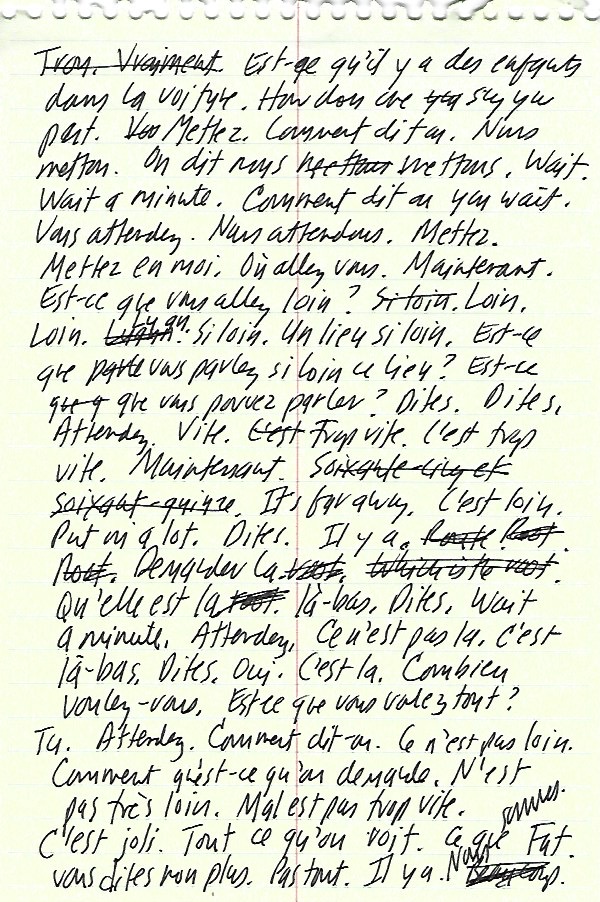 Tron. Vraiment. Est-ce qu'il y a des enfants
dans la voiture. How does one say you
put. Vou Mettez. Comment dit on. Nous
metton. On dit nous mettons. Wait.
Wait a minute. Comment dit on you wait.
Vous attendez. Nous attendons. Mettez.
Mettez en moi. Où allez vous. Maintenant.
Est-ce que vous allez loin? Si loin. Loin.
Loin. Si loin. Un lieu si loin. Est-ce
que parle vous parlez si loin ce lieu? Est-ce
que q que vous pouvez parler? Dites. Dites.
Attendez. Vite. C'est Trop vite. C'est trop
vite. Maintenant. Soixante-cinq et
soixant-quinze. It's far away. C'est loin.
Put on a lot. Dites. Il y a. Route Root.
Root. Demander la root. Which is the root.
Qu'elle est la root. là-bas. Dites. Wait
a minute. Attendez. Ce n'est pas la. C'est
là-bas. Dites. Oui. C'est la. Combien
voulez-vous. Est ce que vous voulez tout?
Tu. Attendez. Comment dit-on. Ce n'est pas loin.
Comment qu'est-ce qu'on demande. N'est
pas très loin. Mal est pas trop vite.
C'est joli. Tout ce qu'on voit. Ce que Fut.
vous dites non plus. Pas tout. Il y a. Nous sommes. Beaucoup.